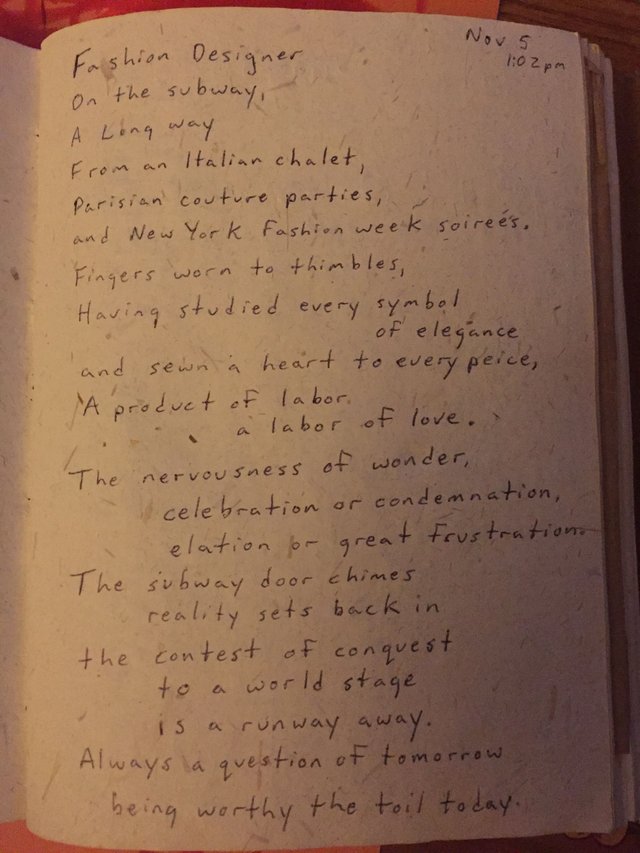 Nov 5
1:02pm
Fashion Designer
On the subway,
A Long way
From an Italian chalet,
Parisian couture parties,
and New York Fashion week soireés.
Fingers worn to thimbles,
Having studied every symbol
of elegance
and sewn a heart to every peice,
A product of labor
a labor of love.
The nervousness of wonder,
celebration or condemnation,
elation or great frustration.
The subway door chimes
reality sets back in
the contest of conquest
to a world stage
is a runway away.
Always a question of tomorrow
being worthy the toil today.